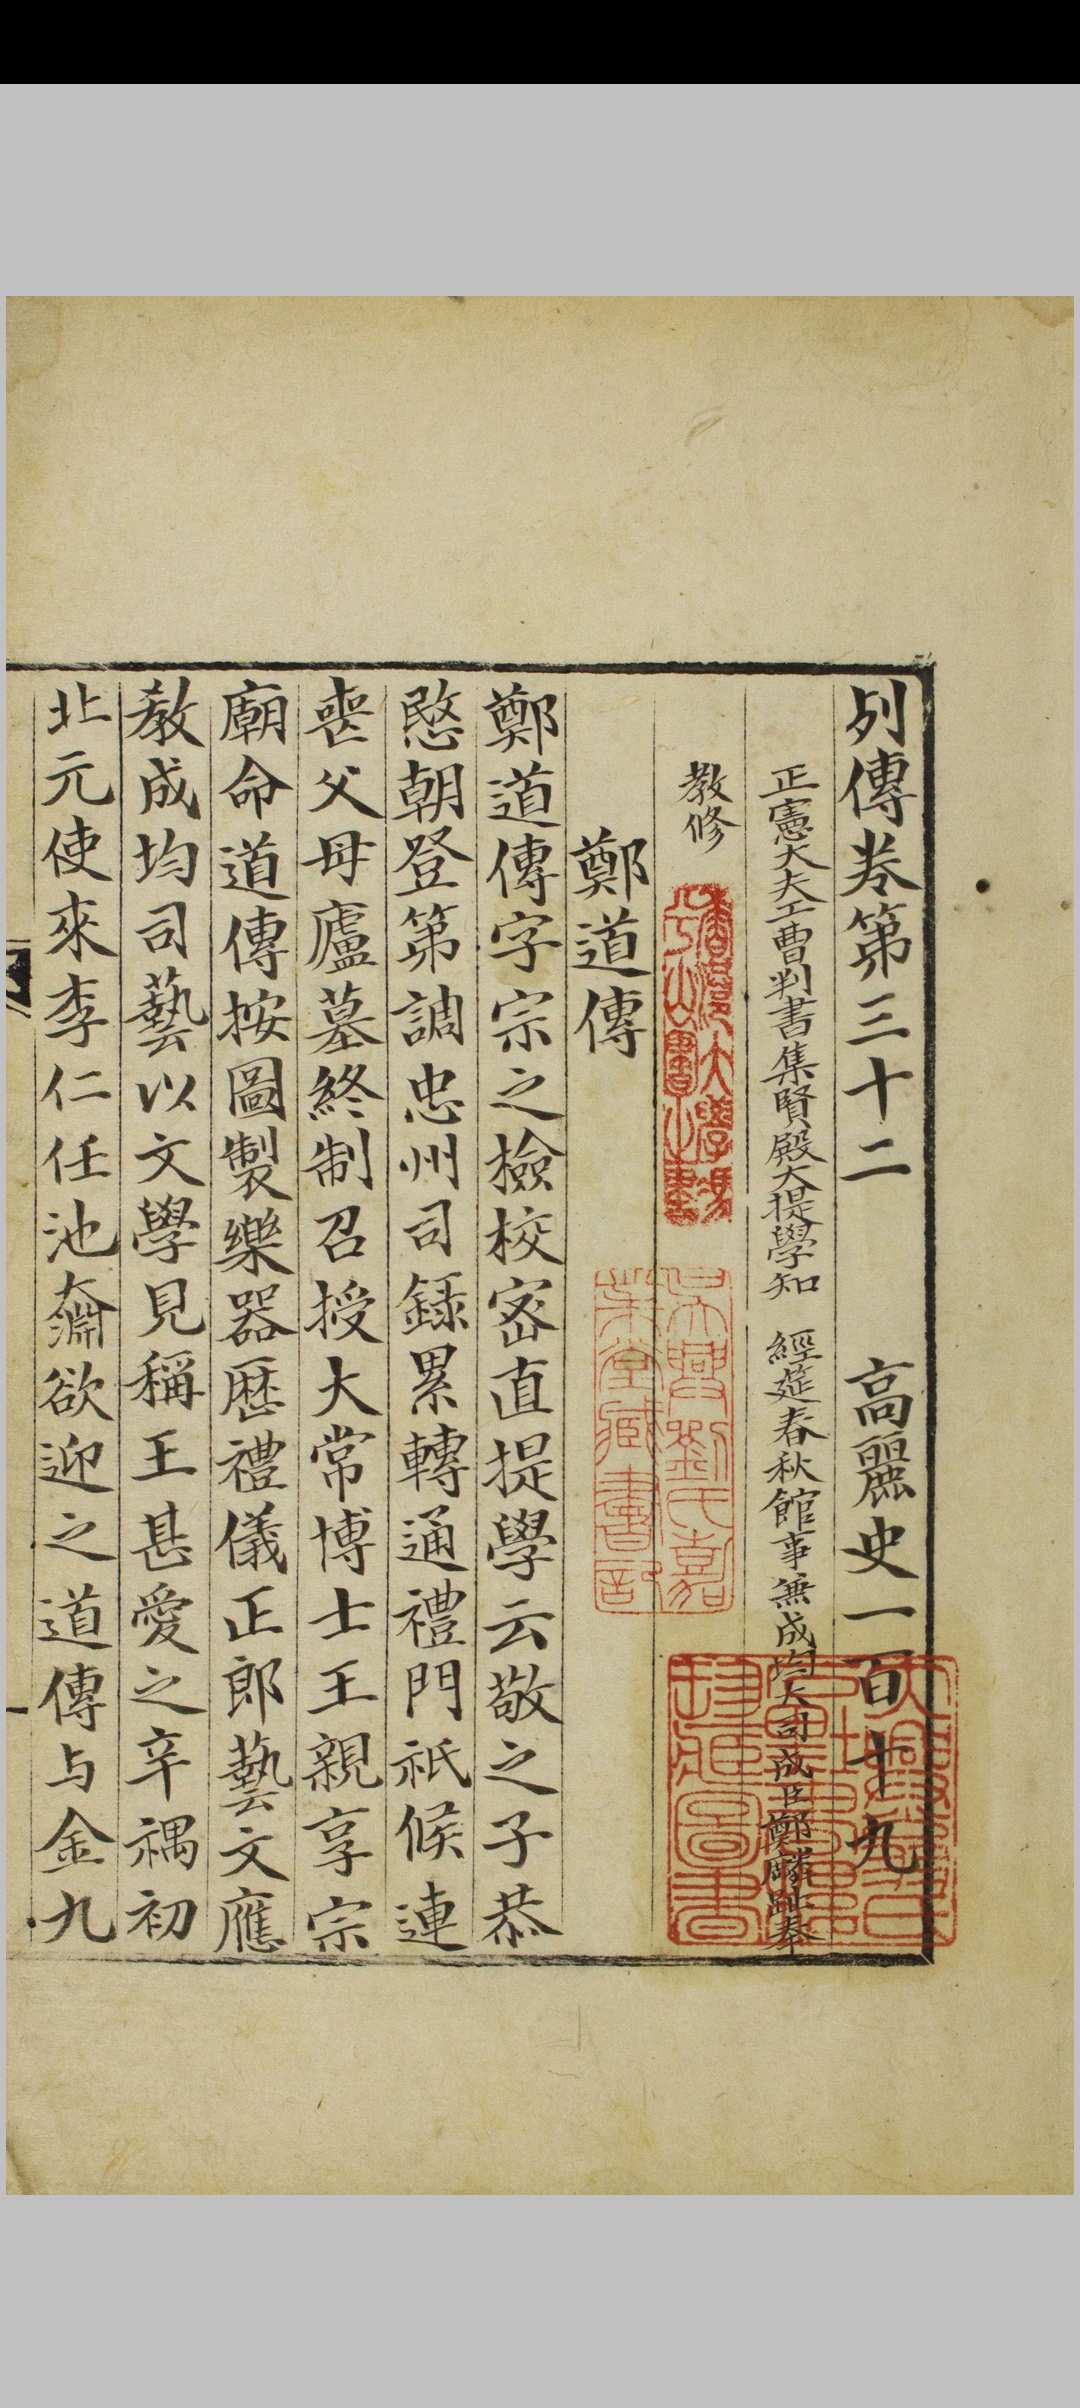 列傳卷第三十二　高麗史一百十九
正憲大夫工曹判書集賢殿大提學知　經筵春秋館事兼成均大司成臣鄭麟趾奉
教修
鄭道傳
鄭道傳字宗之檢校密直提學云敬之子恭
愍朝登第調忠州司錄累轉通禮門祗候連
喪父母廬墓終制召授大常博士王親享宗
廟命道傳按圖製樂器歷禮儀正郎藝文應
敎成均司藝以文學見稱王甚愛之辛禑初
北元使來李仁任池奫欲迎之道傳与金九
吳興劉氏嘉
業堂臧書記